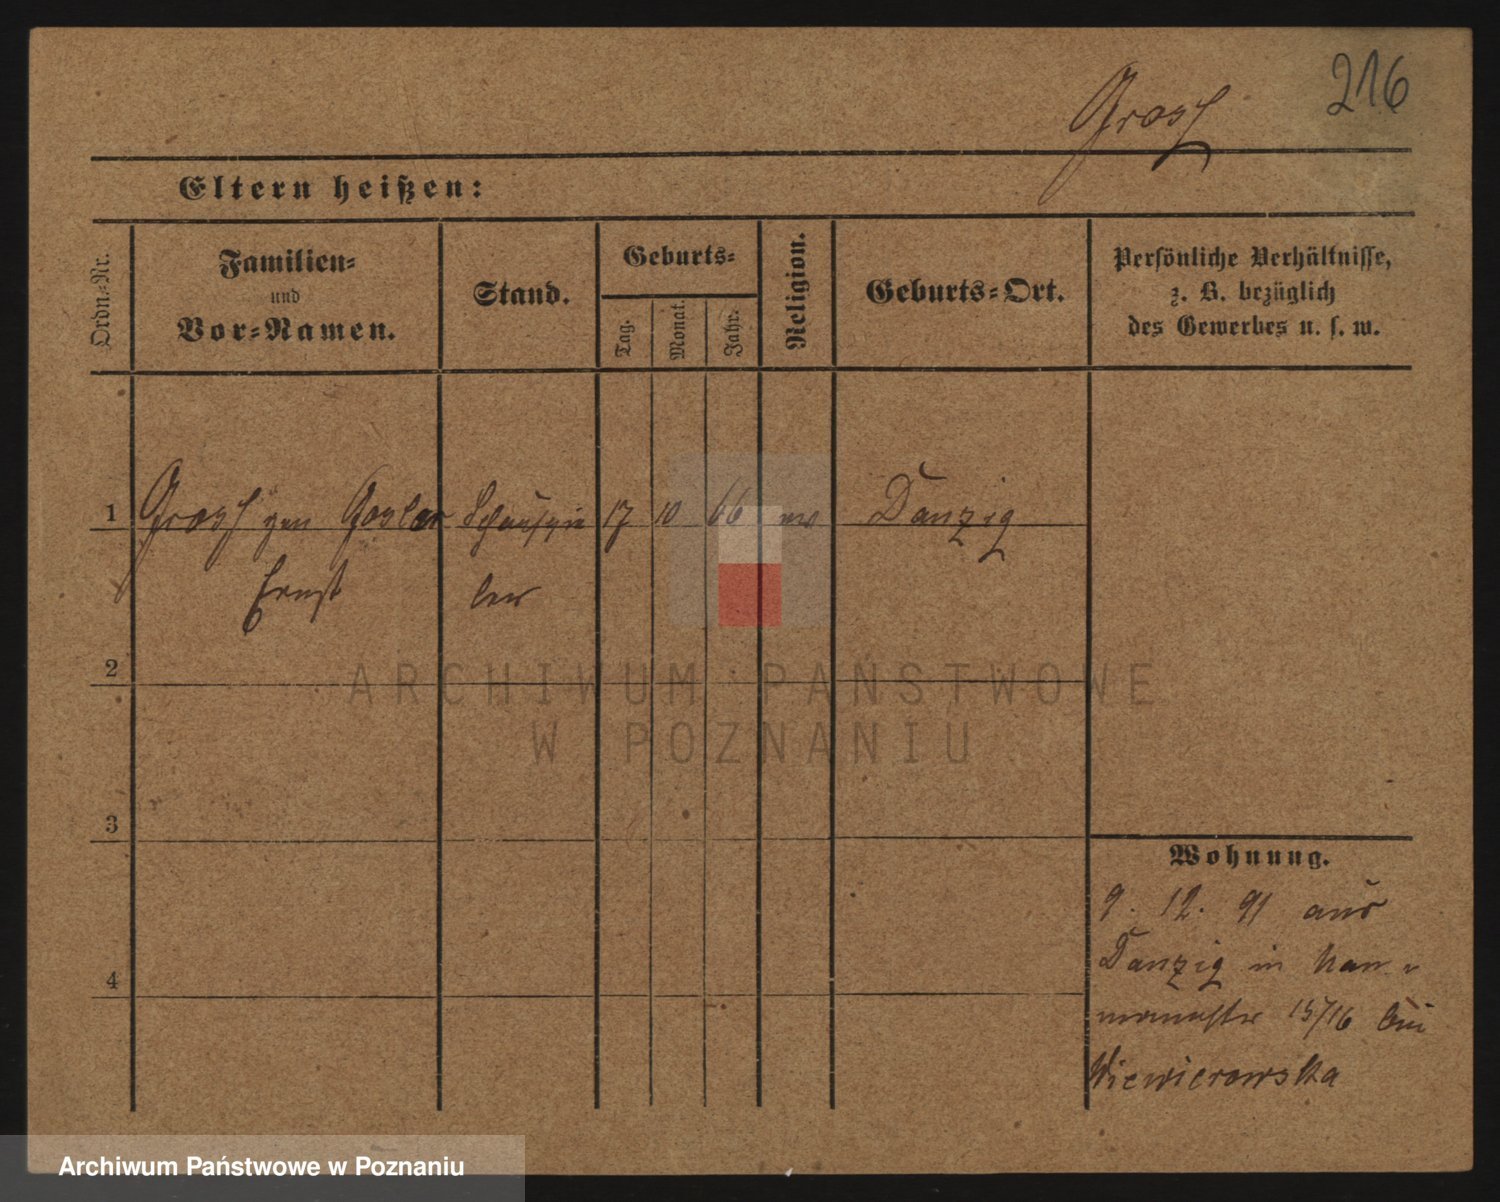 216
Grosh
Eltern heißen:
Ordn.-Nr.
Familien-
und
Vor-Namen.
Stand.
Geburts-
Tag.
Monat.
Jahr.
Religion.
Geburts-Ort.
Persönliche Verhältnisse,
z. B. bezüglich
des Gewerbes u. s. w.
1 gen Goslar Schauspie 17 10 66 ev Danzig
Ernst ler
2
3
4
Wohnung.
9. 12. 91 aus
Danzig in
15/16 bei
Wiewierowska
ARCHIWUM PAŃSTWOWE
W POZNANIU
Archiwum Państwowe w Poznaniu